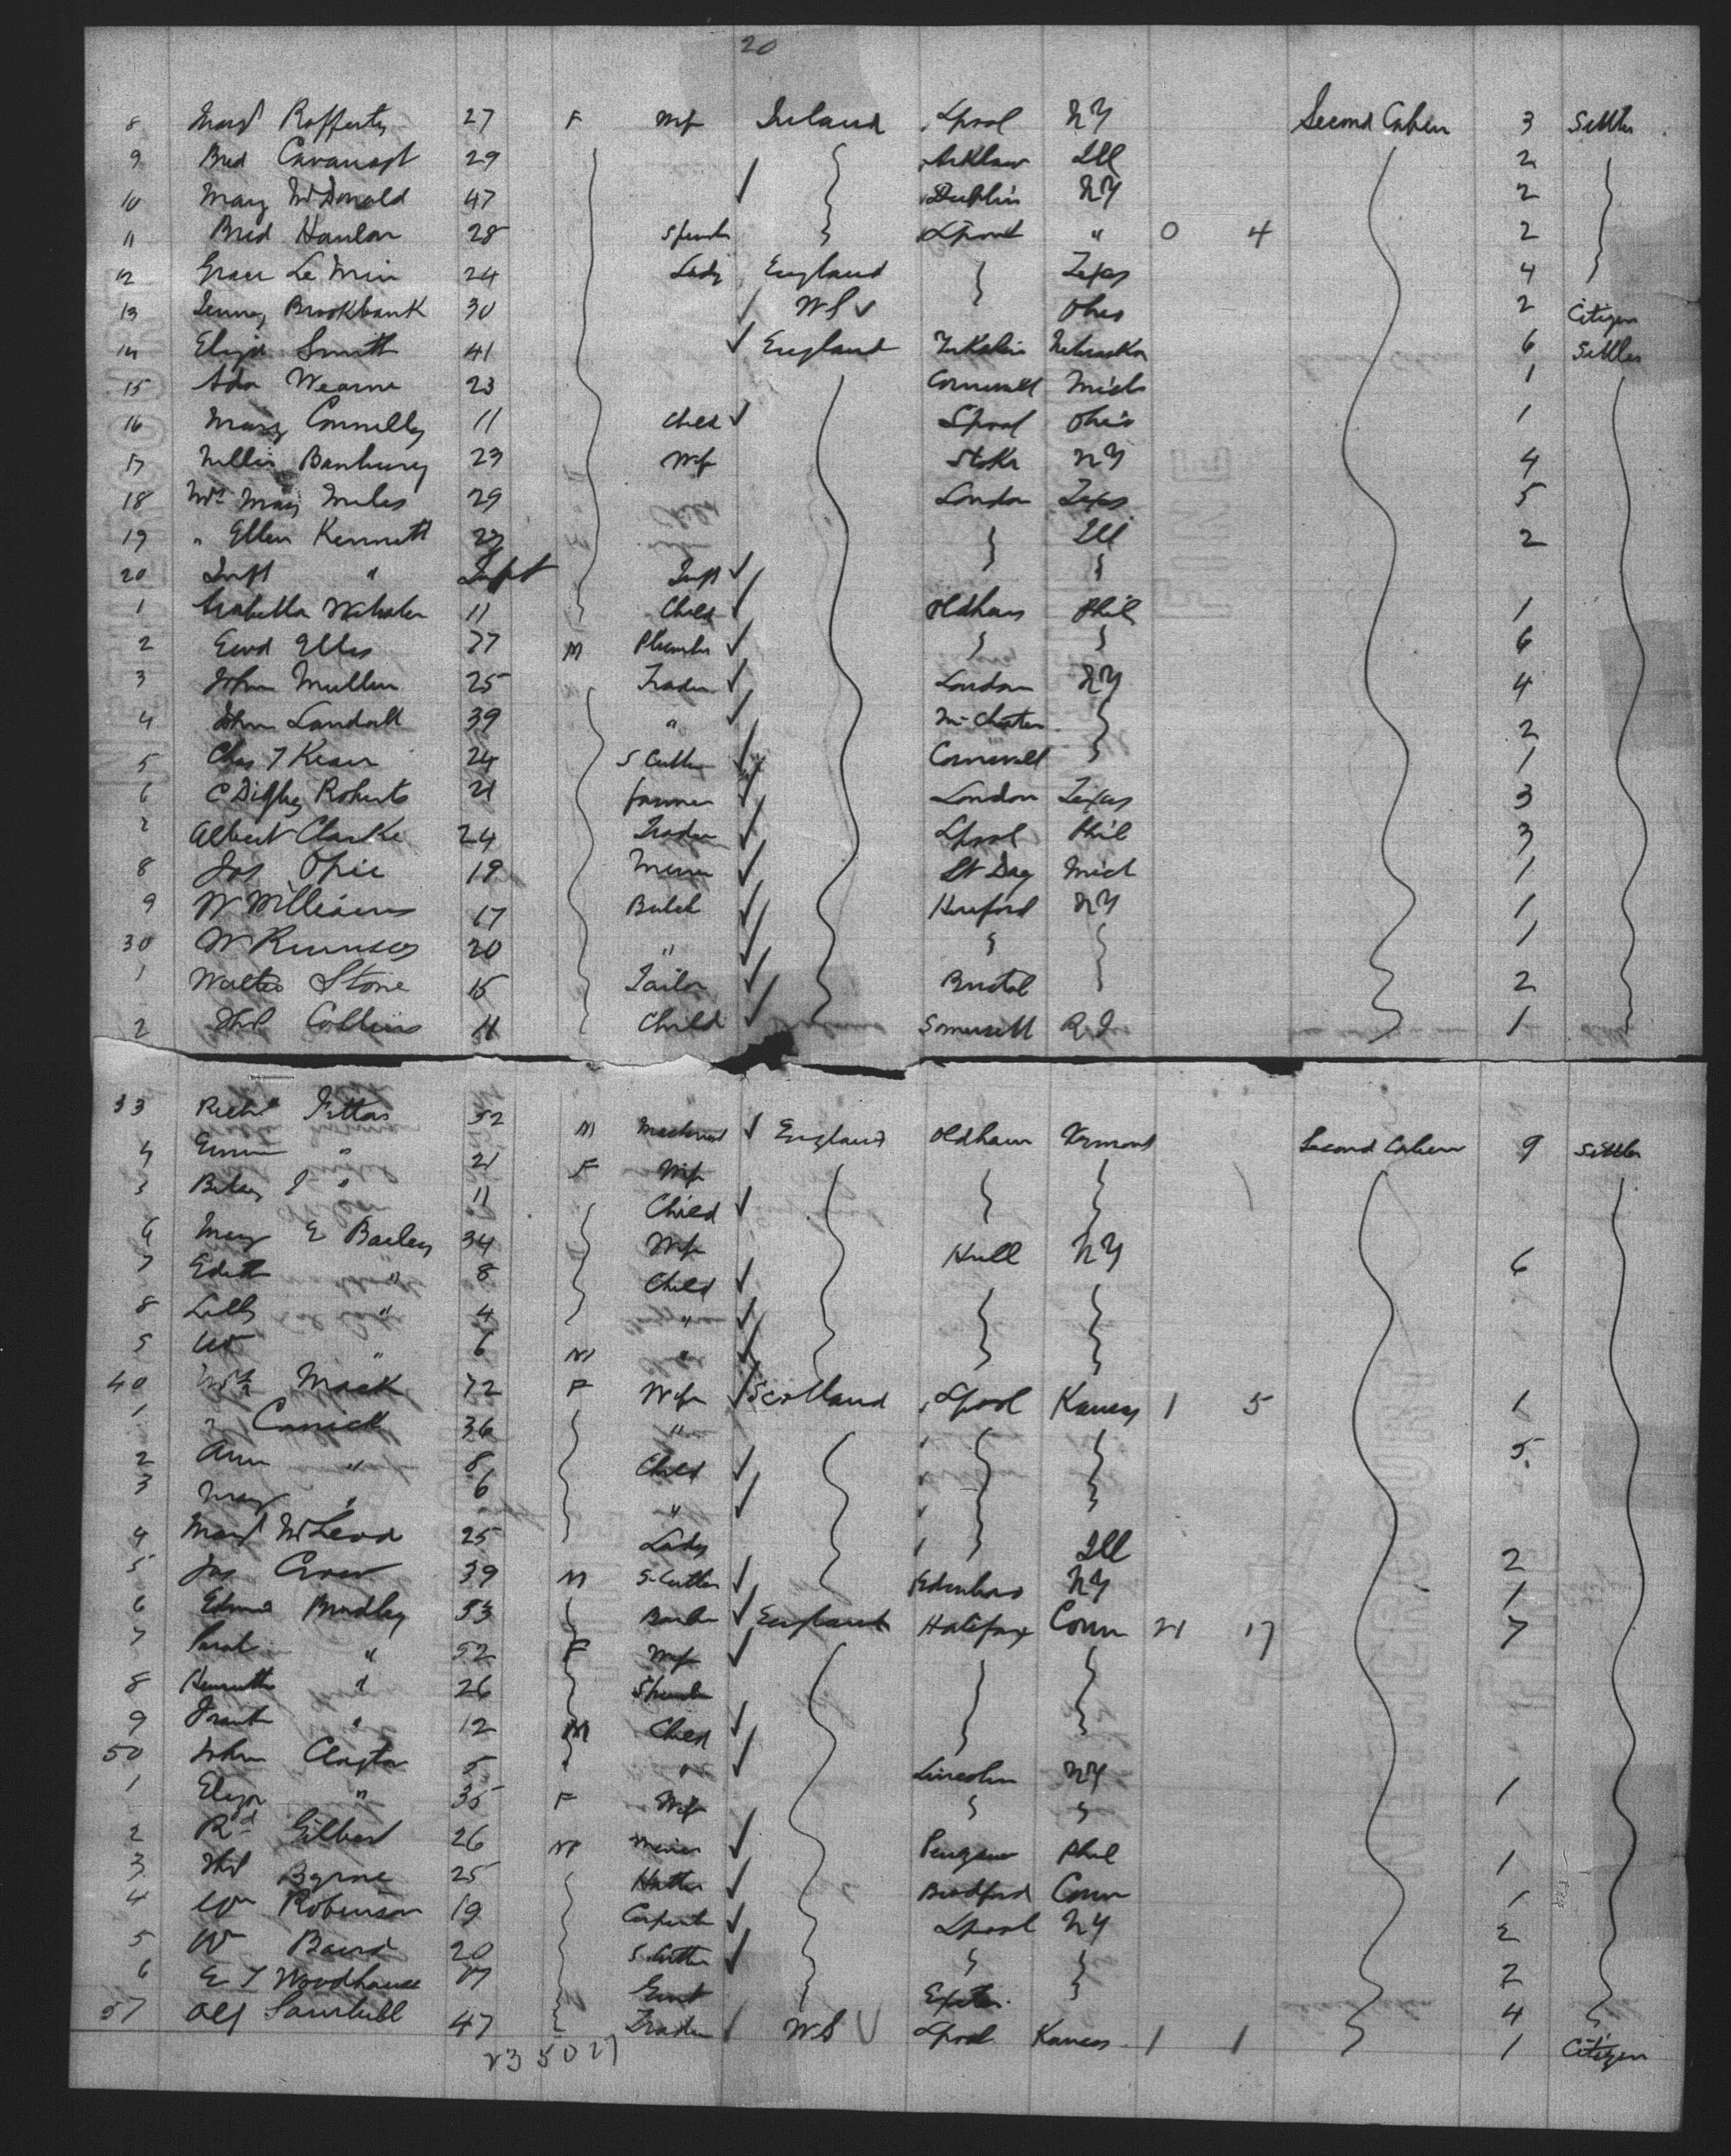 20
8 Marg Rafferty 27 F Wife Ireland Lpool NY Second Cabin 3 Settler
9 Brid Cavanagh 29 Arklow Ill 2
10 Mary McDonald 47 Dublin NY 2
11 Brid Hanlon 28 Spinster Lpool " 0 4 2
12 Grace Le Min 24 Lady England Texas 4
13 Jenny Brookbank 30 US Ohio 2 Citizen
14 Eliza Smith 41 England Nebraska 6 Settler
15 Ada Wearne 23 Cornwall Mich 1
16 Mary Connelly 11 Child Lpool Ohio 1
17 Nellie Banbury 23 Wife Stoke NY 4
18 Mrs Mary Miles 29 London Texas 5
19 " Ellen Kennett 27 Ill 2
20 Inft " Inft Inft
1 Arabella 11 Child Oldham Phil 1
2 Ewd Ellis 77 M Plumber 6
3 John Mullin 25 Trader London NY 4
4 John Landall 39 " 2
5 Chas T Kear 24 S Cutter Cornwall 1
6 C Digby Roberts 21 farmer London Texas 3
7 Albert Clarke 24 Trader Lpool Phil 3
8 Jos Opie 19 Miner St Day Mich 1
9 W Williams 17 Butch Hereford NY 1
30 W Rumsey 20 " 1
1 Walter Stone 15 Tailor Bristol 2
2 Collins 11 Child Somersett R I 1
33 Richd Fitton 52 M Machinist England Oldham Vermont Second Cabin 9 Settler
4 " 21 F Wife
5 Betsy " 11 Child
6 Mary E Barley 34 Wife Hull NY 6
7 Edith " 8 Child
8 Lilly " 4 "
9 Wm " 6 M "
40 Mrs Mack 72 F Wife Scotland Lpool Kansas 1 5 1
1 " Carrick 36 " 5
2 Ann " 8 Child
3 May " 6 "
4 Marg McLeod 25 Lady Ill 2
5 Jas 39 M S. Cutter Edinboro NY 1
6 Bradley 53 England Halifax Conn 21 17 7
7 Sarah " 52 F Wife
8 " 26 Spinster
9 Frank " 12 M Child
50 John Clayton 5 " Lincoln NY 1
1 Eliza " 35 F Wife
2 Rd Gilbert 26 M Miner Penzance Phil 1
3 Byrne 25 Hatter Bradford Conn 1
4 Wm Robinson 19 Carpenter Lpool NY 2
5 W Baird 20 S. Cutter 2
6 E T Woodhouse Gent Exeter 4
57 Alf 47 Trader US Lpool Kansas 1 1 1 Citizen